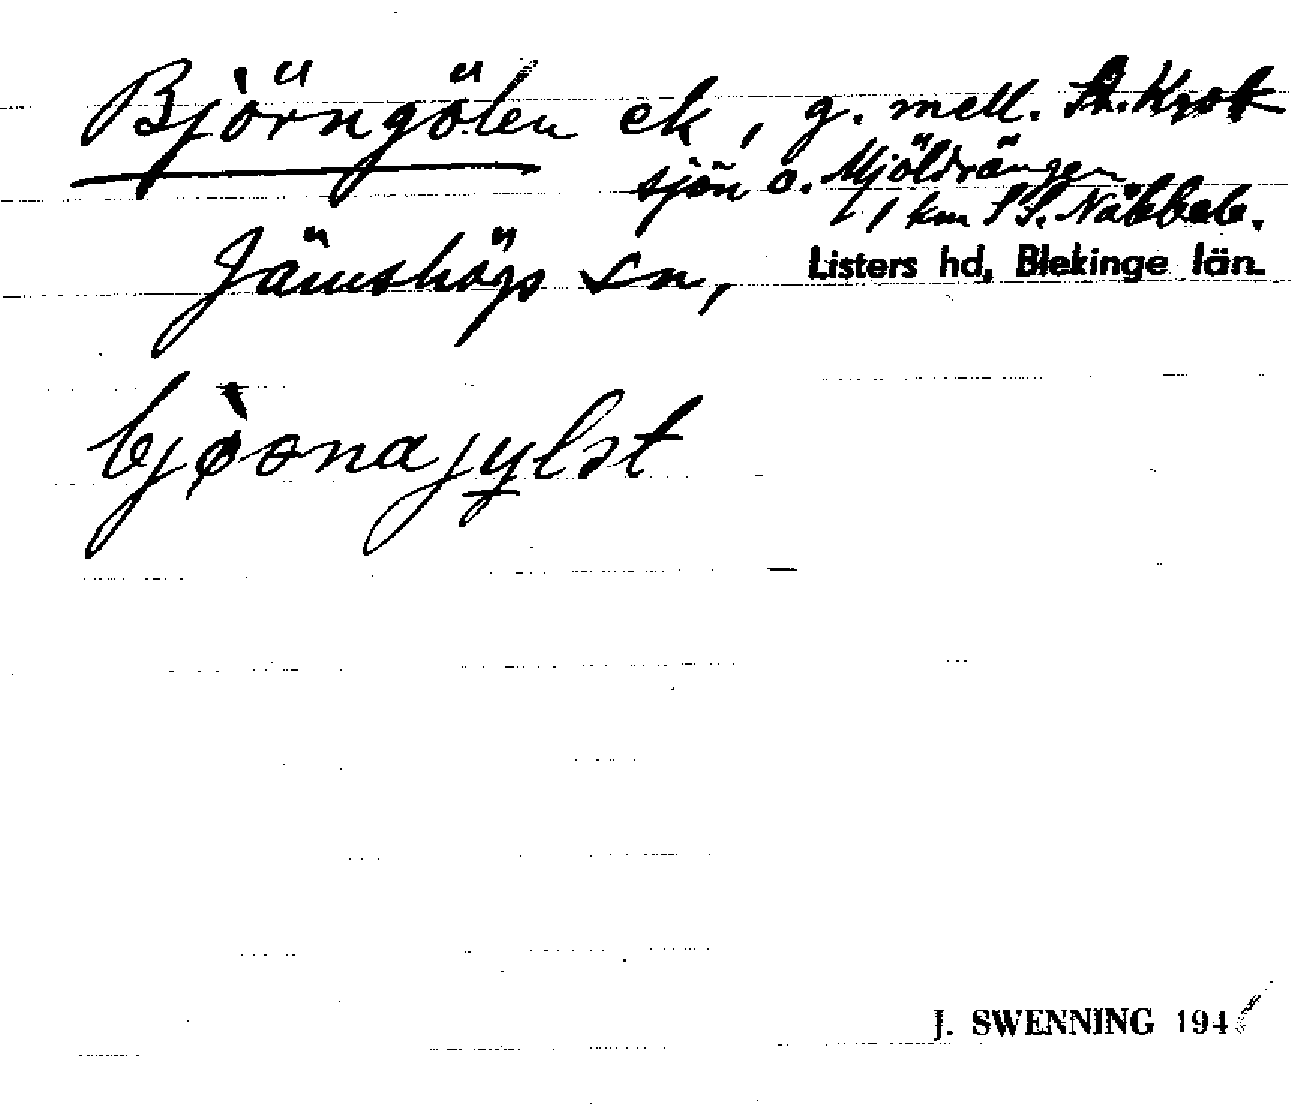 Björngölen ek, g. mell. St. Krok
sjön o. Mjöldrängen
1 km S S. Näbbeb.
Jämshögs sn,
Listers hd, Blekinge län.
J. SWENNING 194